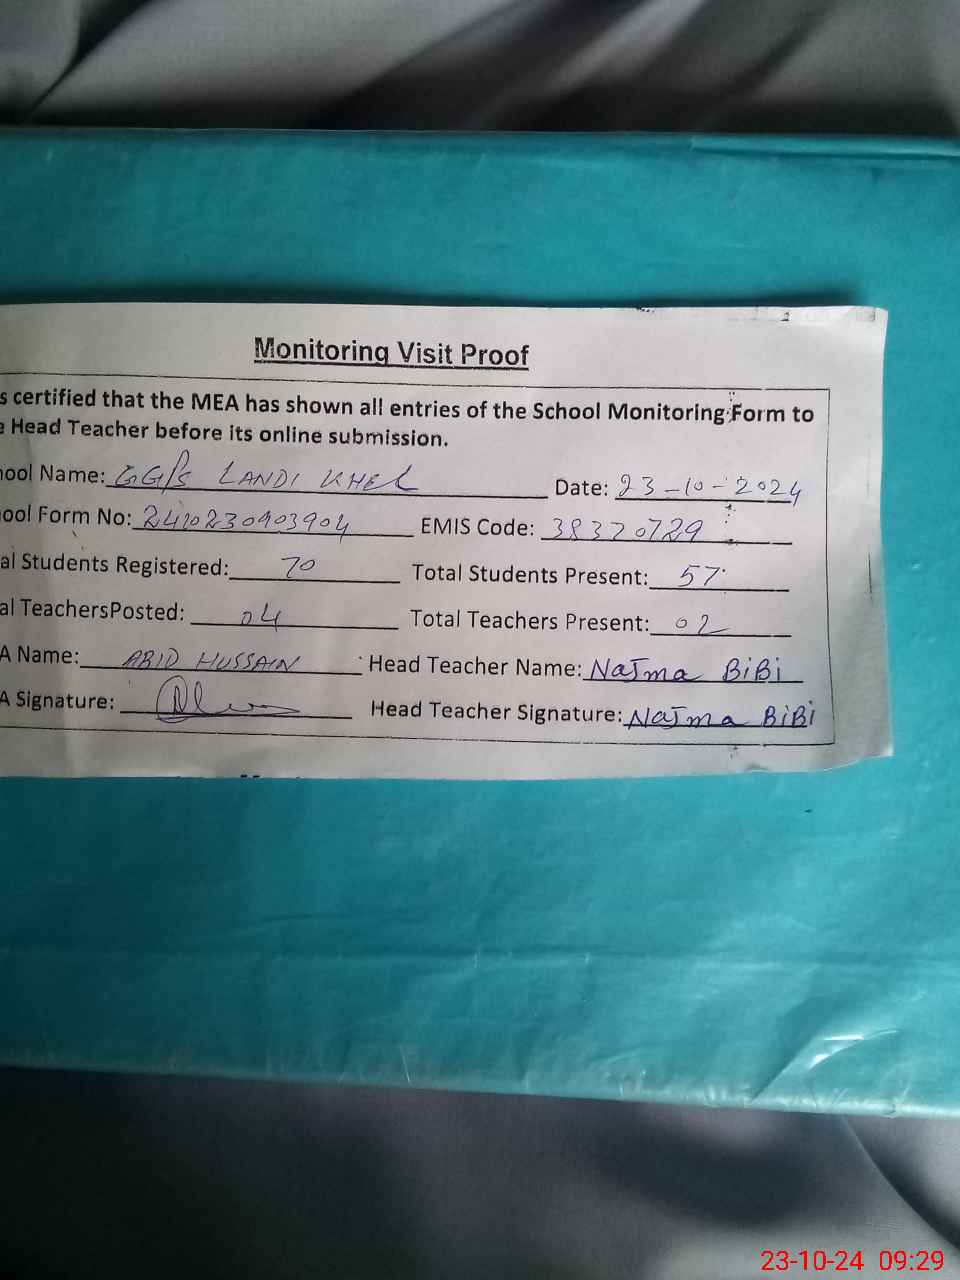 Monitoring Visit Proof
s certified that the MEA has shown all entries of the School Monitoring Form to
e Head Teacher before its online submission.
hool Name: GGPS LANDI KHEL Date: 23-10-2024
ool Form No: 2410230903904 EMIS Code: 38320729
al Students Registered: 70 Total Students Present: 57
al TeachersPosted: 04 Total Teachers Present: 02
A Name: ABID HUSSAIN Head Teacher Name: Najma BiBi
A Signature: Head Teacher Signature: Najma BiBi
23-10-24 09:29